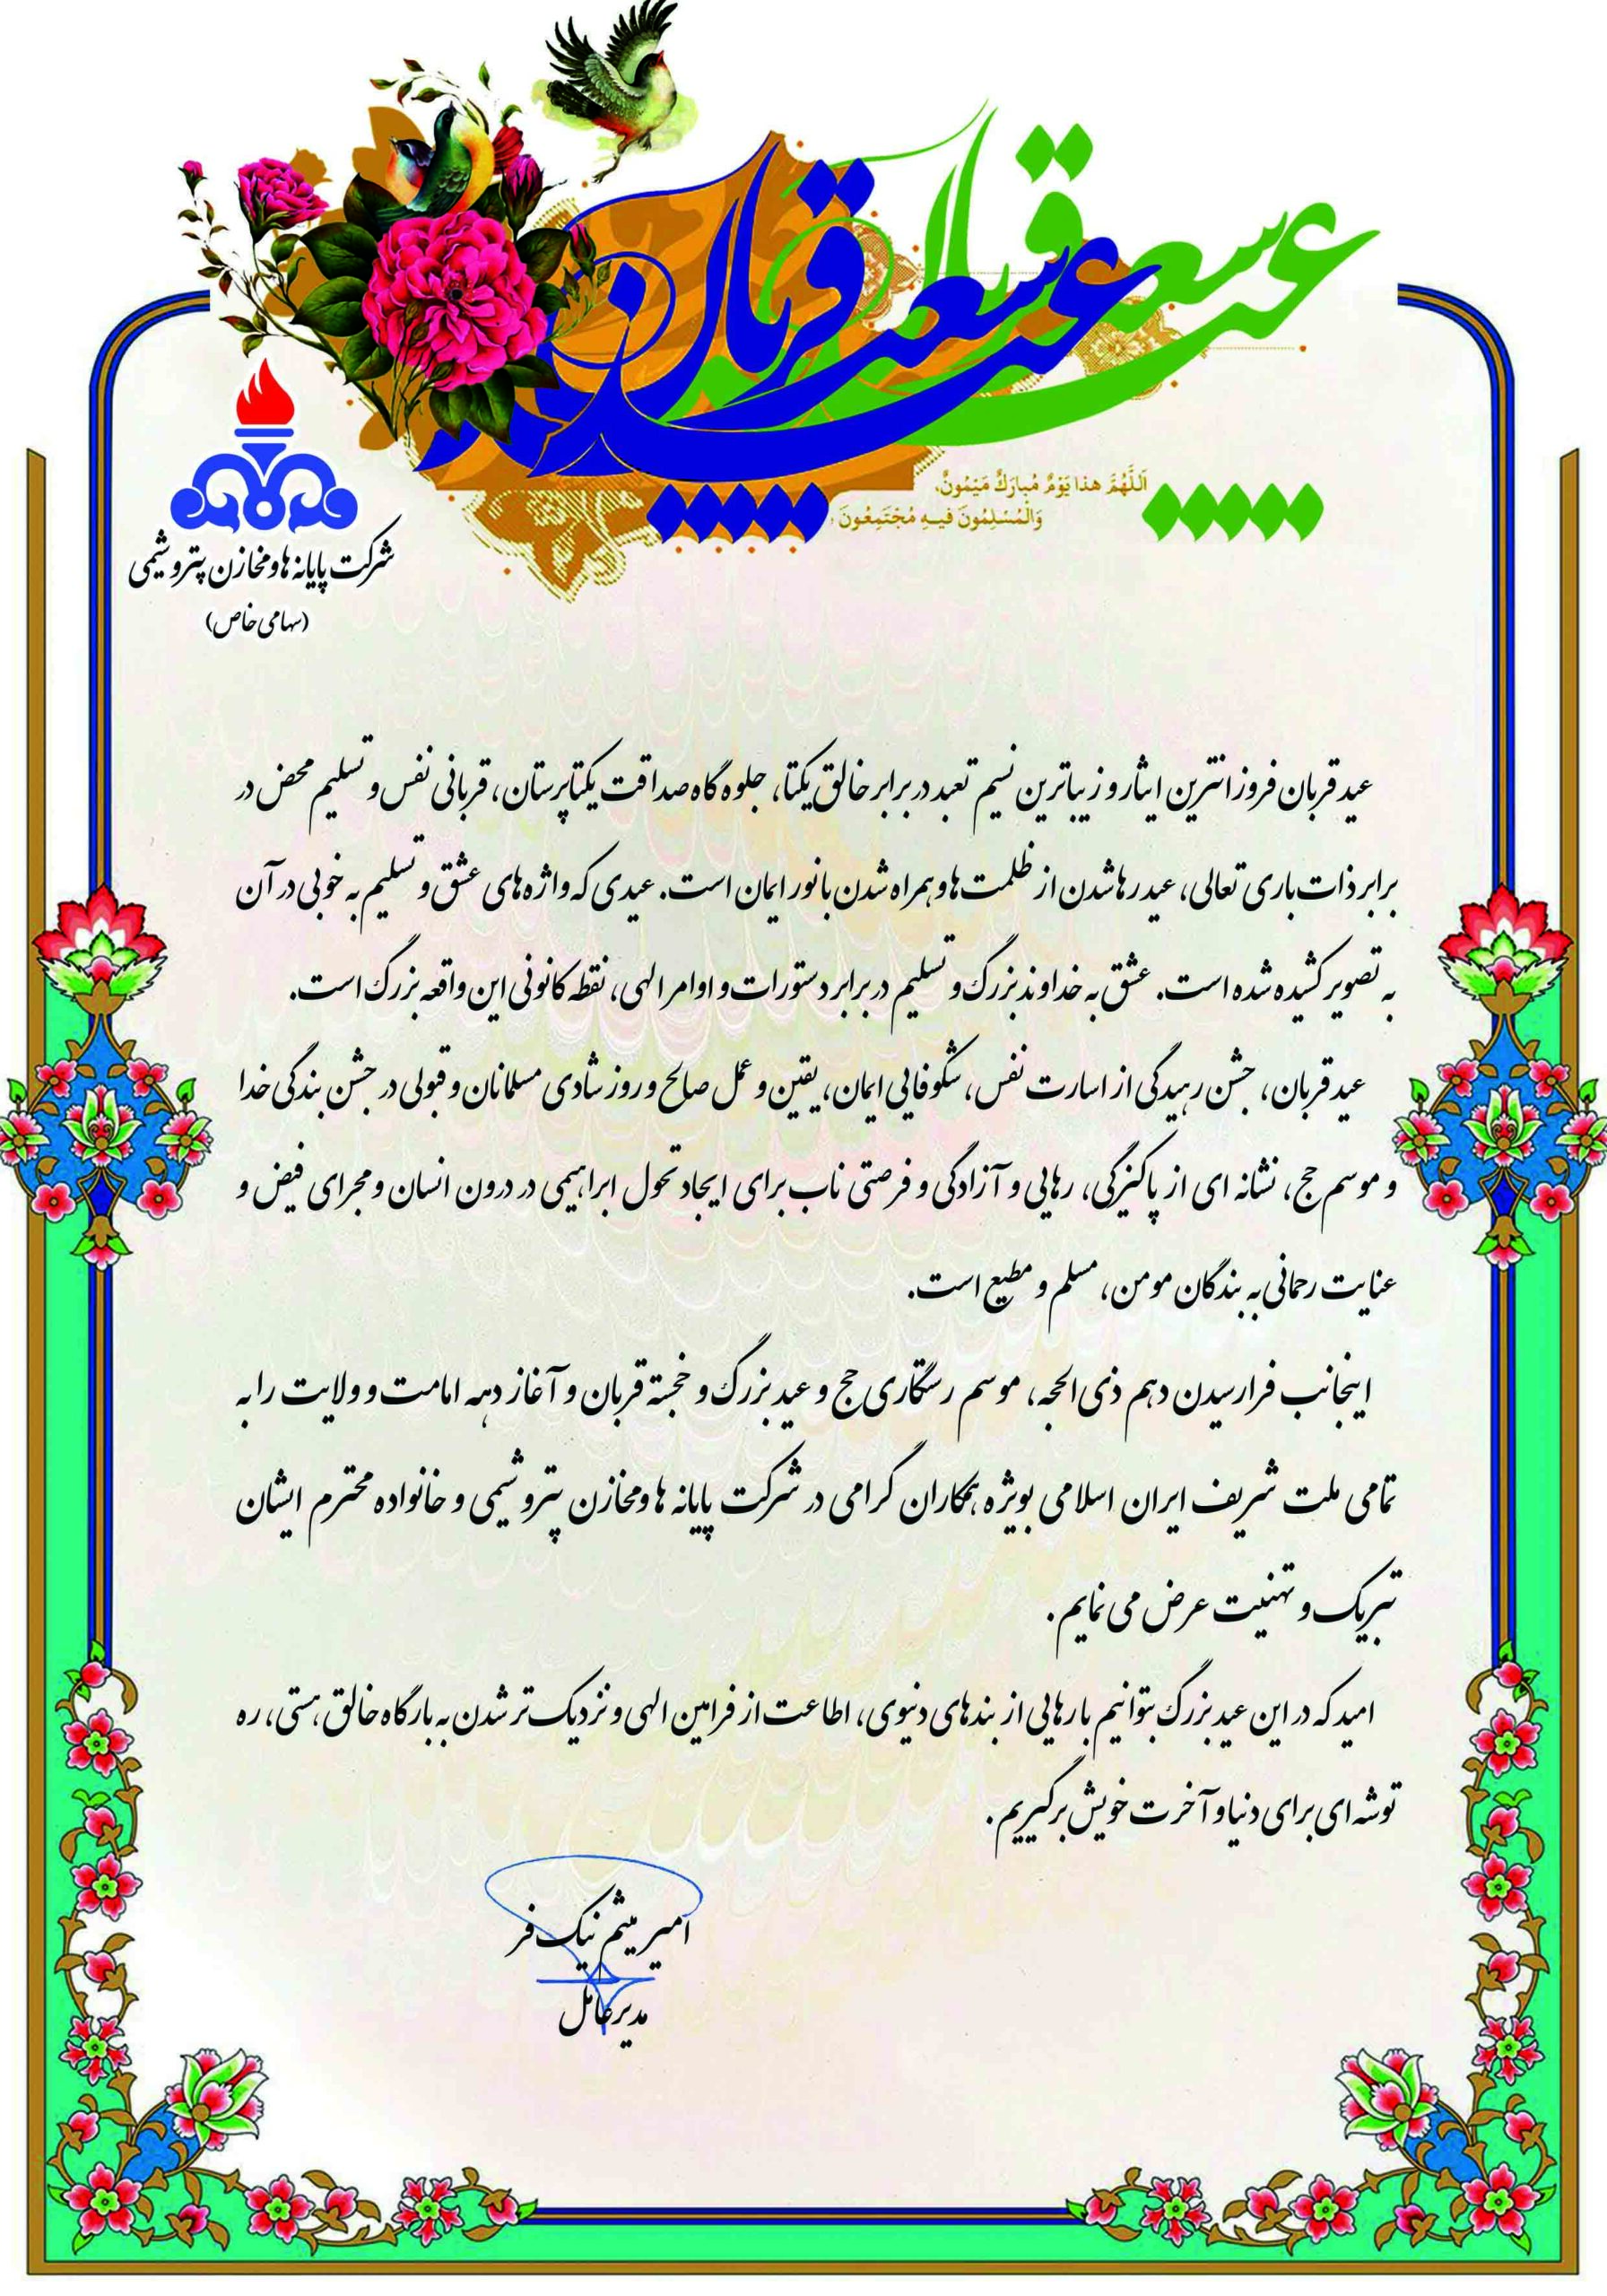 عید سعید قربان
عید سعید قربان
اَللّهُمَّ هذا يَوْمٌ مُبارَكٌ مَيْمُونٌ،
وَالْمُسْلِمُونَ فيهِ مُجْتَمِعُونَ
شرکت پایانه ها و مخازن پتروشیمی
(سهامی خاص)
عید قربان فروزانترین ایثار و زیباترین نسیم تعبد در برابر خالق یکتا، جلوه گاه صداقت یکتاپرستان، قربانی نفس و تسلیم محض در
برابر ذات باری تعالی، عید رها شدن از ظلمت ها و همراه شدن با نور ایمان است. عیدی که واژه های عشق و تسلیم به خوبی در آن
به تصویر کشیده شده است. عشق به خداوند بزرگ و تسلیم در برابر دستورات و اوامر الهی، نقطه کانونی این واقعه بزرگ است.
عید قربان، جشن رهیدگی از اسارت نفس، شکوفایی ایمان، یقین و عمل صالح و روز شادی مسلمانان و قبولی در جشن بندگی خدا
و موسم حج، نشانه ای از پاکیزگی، رهایی و آزادگی و فرصتی ناب برای ایجاد تحول ابراهیمی در درون انسان و مجرای فیض و
عنایت رحمانی به بندگان مومن، مسلم و مطیع است.
اینجانب فرارسیدن دهم ذی الحجه، موسم رستگاری حج و عید بزرگ و خجسته قربان و آغاز دهه امامت و ولایت را به
تمامی ملت شریف ایران اسلامی بویژه همکاران گرامی در شرکت پایانه ها و مخازن پتروشیمی و خانواده محترم ایشان
تبریک و تهنیت عرض می نمایم.
امید که در این عید بزرگ بتوانیم با رهایی از بندهای دنیوی، اطاعت از فرامین الهی و نزدیک تر شدن به بارگاه خالق هستی، ره
توشه ای برای دنیا و آخرت خویش برگیریم.
امیر میثم نیک فر
مدیرعامل